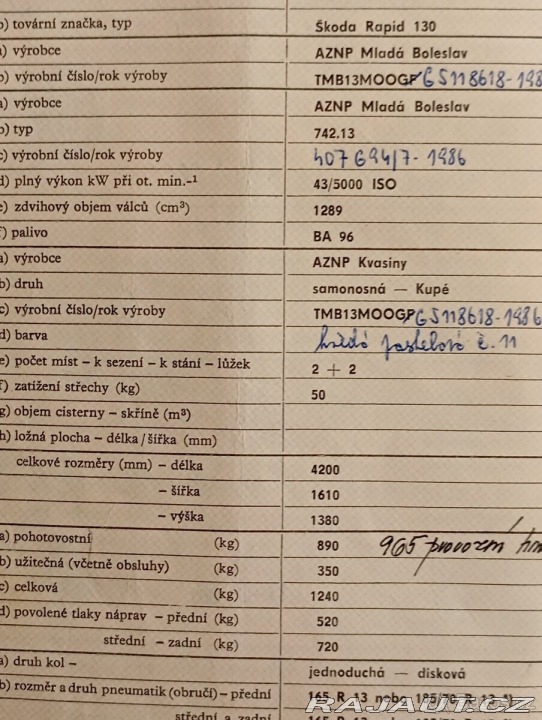 b) tovární značka, typ Škoda Rapid 130
a) výrobce AZNP Mladá Boleslav
b) výrobní číslo/rok výroby TMB13MOOGP G5118618-198
a) výrobce AZNP Mladá Boleslav
b) typ 742.13
c) výrobní číslo/rok výroby 407 694/7-1986
d) plný výkon kW při ot. min.-1 43/5000 ISO
e) zdvihový objem válců (cm³) 1289
f) palivo BA 96
a) výrobce AZNP Kvasiny
b) druh samonosná — Kupé
c) výrobní číslo/rok výroby TMB13MOOGP G5118618-1986
d) barva hnědá pastelová č. 11
e) počet míst – k sezení – k stání – lůžek 2 + 2
f) zatížení střechy (kg) 50
g) objem cisterny – skříně (m³)
h) ložná plocha – délka/šířka (mm)
celkové rozměry (mm) – délka 4200
– šířka 1610
– výška 1380
a) pohotovostní (kg) 890 965 provozní hm
b) užitečná (včetně obsluhy) (kg) 350
c) celková (kg) 1240
d) povolené tlaky náprav – přední (kg) 520
střední – zadní (kg) 720
a) druh kol – jednoduchá — disková
b) rozměr a druh pneumatik (obručí) – přední 165 R 13 nebo 185/70 R 13 *)
střední a zadní
RAJAUT.CZ